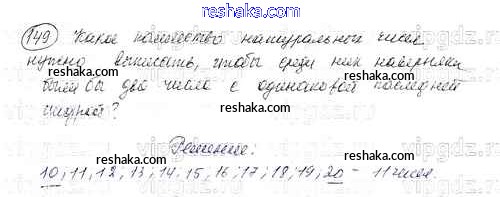 reshaka.com
149 Какое количество натуральных чисел
нужно выписать, чтобы среди них наверняка
reshaka.com
были бы два числа с одинаковой последней
цифрой?
reshaka.com
Решение:
10, 11, 12, 13, 14, 15, 16, 17, 18, 19, 20 - 11 чисел.
reshaka.com